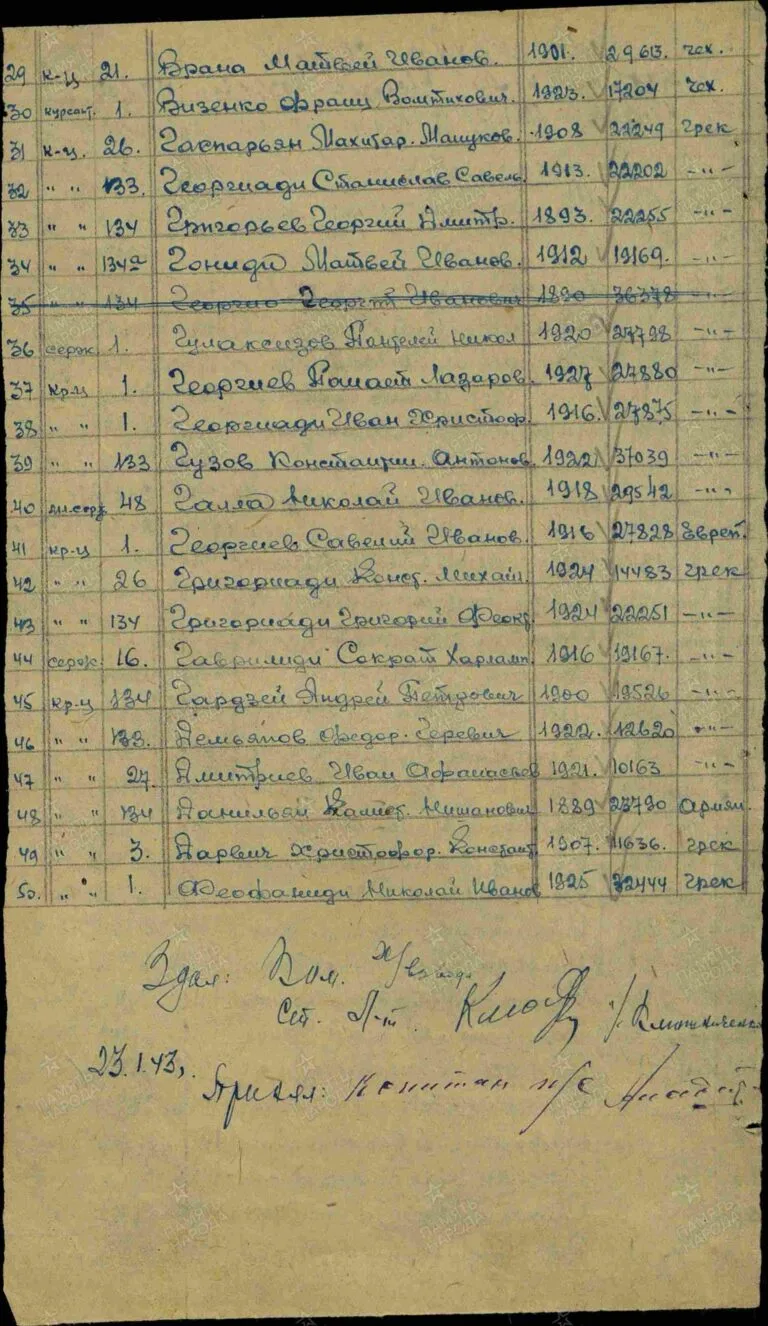 29 к-ц 21. Врана Матвей Иванов. 1901. 29613. чех.
30 курсант. 1. Визенко Франц 1923. 17204 чех.
31 к-ц. 26. Гаспарьян Махитар. Мащуков. 1908 22249 грек
32 " " 133. Георгиади Станислав Савель. 1913. 22202 -"-
33 " " 134 Григорьев Георгий Дмитр. 1893. 22255 -"-
34 " " 134а Гониди Матвей Иванов. 1912 19169. -"-
35 " " 134 Георгий Иванович 1890 36378 -"-
36 серж. 1. Пантелей Никол 1920 27798 -"-
37 кр-ц 1. Георгиев Лазаров 1927 27880 -"-
38 " " 1. Георгиади Иван Христофор. 1916. 27875 -"-
39 " " 133 Гузов Константин. Антонов. 1922 37039 -"-
40 мл.серж. 48 Галла Николай Иванов. 1918 29542 -"-
41 кр-ц 1. Георгиев Савелий Иванов. 1916 27828 Еврей.
42 " " 26 Григориади Конст. Михаил. 1924 14483 грек
43 " " 134 Григориади Григорий Феокт. 1924 22251 -"-
44 серж. 16. Гаврилиди Сократ Харламп. 1916 19167. -"-
45 кр-ц 134 Гардзей Андрей Петрович 1900 19526 -"-
46 " " 133. Демьянов Федор. 1922. 12620 -"-
47 " " 27. Дмитриев Иван Афанасьев 1921. 10163 -"-
48 " " 134 Данильян Мишанович 1889 23790 Армян.
49 " " 3. Дарвич Христофор. Констант. 1907. 11636. грек
50. " " 1. Феофаниди Николай Иванов 1925 32444 грек
Здал: Ком. х/взвода
Ст. Л-т.
23.1.43г.
Принял: Капитан и/с
ПАМЯТЬ НАРОДА